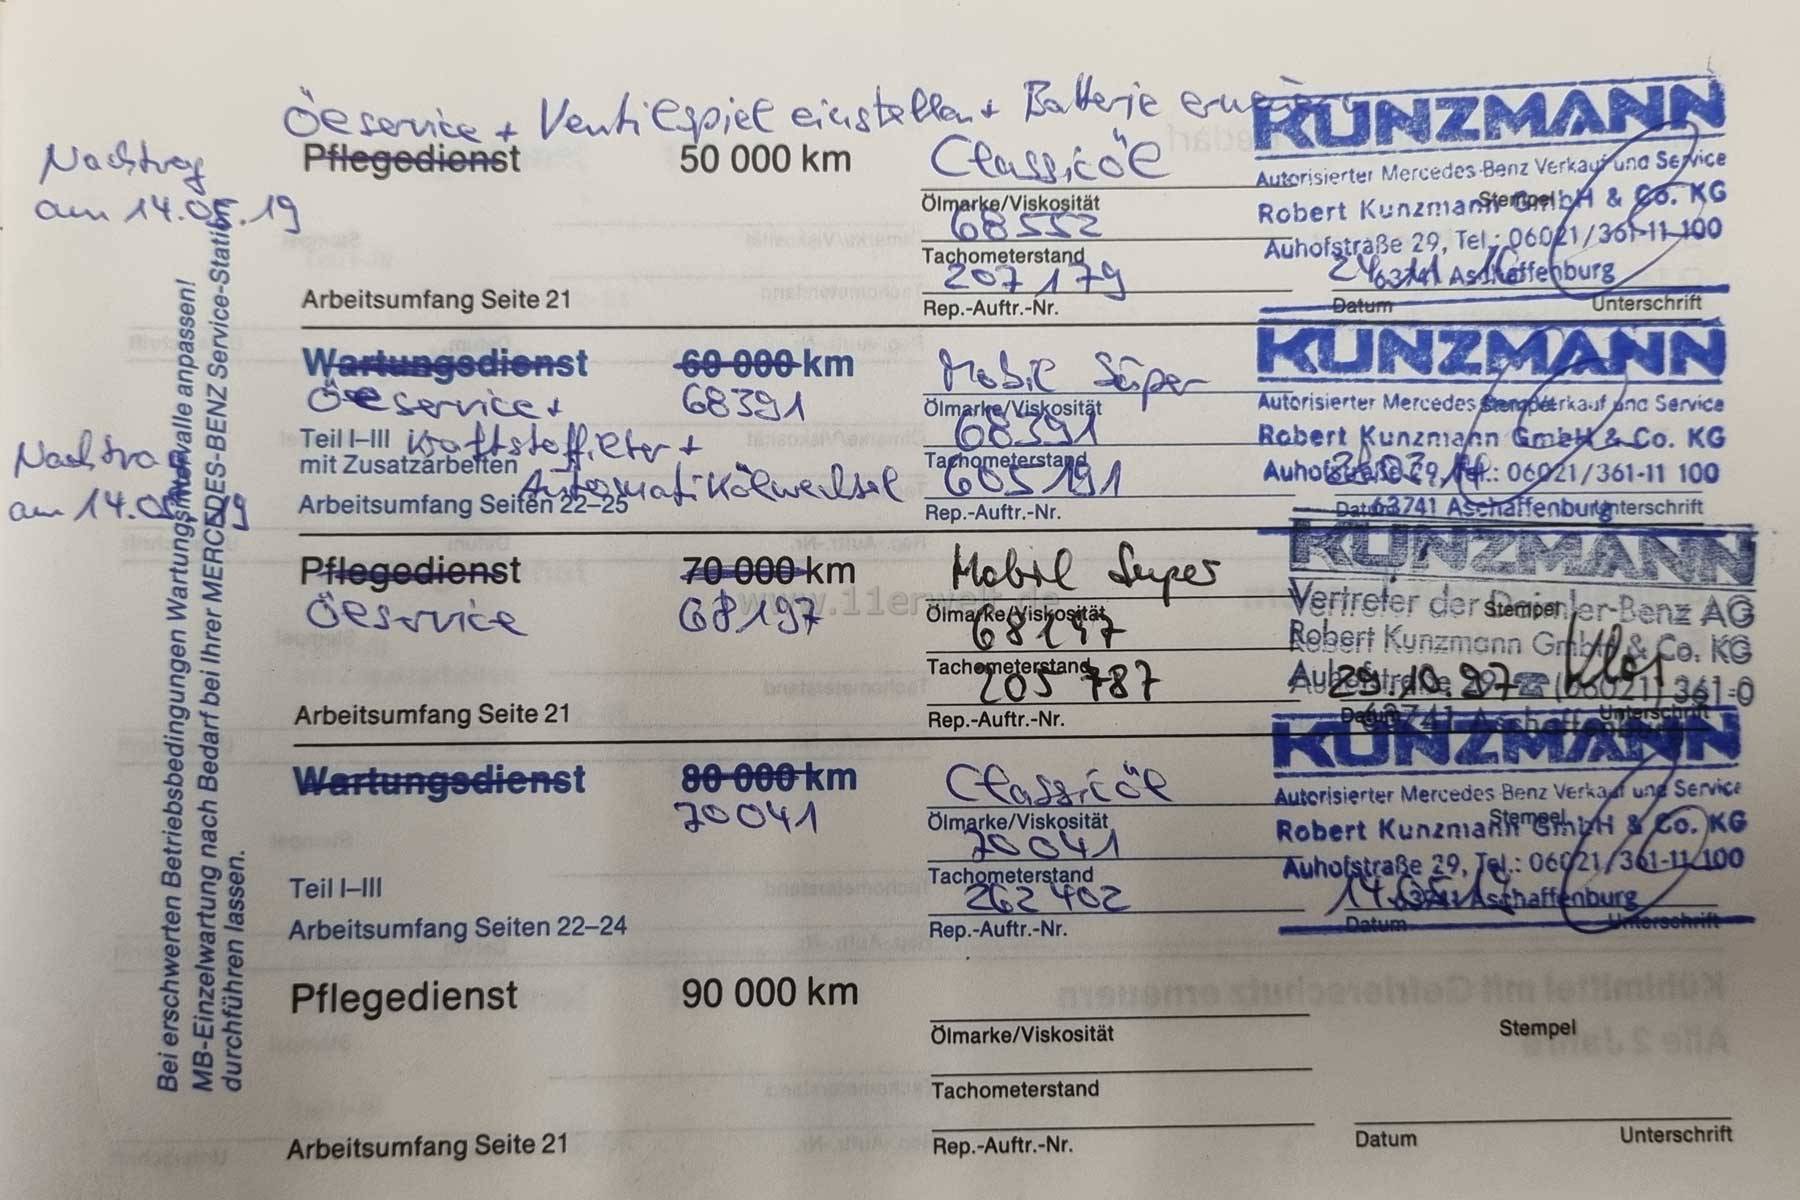 Öeservice + Ventilspiel einstellen + Batterie
Nachtrag
am 14.05.19
Pflegedienst 50 000 km
Classicöl
Ölmarke/Viskosität
68552
Tachometerstand
207179
Arbeitsumfang Seite 21
Rep.-Auftr.-Nr.
KUNZMANN
Autorisierter Mercedes-Benz Verkauf und Service
Stempel
Robert Kunzmann GmbH & Co. KG
Auhofstraße 29, Tel.: 06021/361-11 100
63741 Aschaffenburg
Datum Unterschrift
Wartungsdienst 60 000 km
Öeservice + 68391
Teil I–III Kraftstoffilter +
mit Zusatzarbeiten
Automatikölwechsel
Arbeitsumfang Seiten 22–25
Nachtrag
am 14.05.19
Mobil Super
Ölmarke/Viskosität
68391
Tachometerstand
605191
Rep.-Auftr.-Nr.
KUNZMANN
Autorisierter Mercedes Verkauf und Service
Stempel
Robert Kunzmann GmbH & Co. KG
Auhofstraße 29, Tel.: 06021/361-11 100
63741 Aschaffenburg
Datum Unterschrift
Pflegedienst 70 000 km
Öeservice 68197
Mobil Super
Ölmarke/Viskosität
68197
Tachometerstand
205787
Arbeitsumfang Seite 21
Rep.-Auftr.-Nr.
KUNZMANN
Vertreter der Daimler-Benz AG
Stempel
Robert Kunzmann GmbH & Co. KG
Auhofstraße 29 ☎ (06021) 361-0
29.10.97
63741 Aschaffenburg
Datum Unterschrift
Wartungsdienst 80 000 km
70041
Teil I–III
Arbeitsumfang Seiten 22–24
Classicöl
Ölmarke/Viskosität
70041
Tachometerstand
262402
Rep.-Auftr.-Nr.
KUNZMANN
Autorisierter Mercedes Benz Verkauf und Service
Stempel
Robert Kunzmann GmbH & Co. KG
Auhofstraße 29, Tel.: 06021/361-11 100
63741 Aschaffenburg
Datum Unterschrift
Pflegedienst 90 000 km
Ölmarke/Viskosität
Stempel
Tachometerstand
Arbeitsumfang Seite 21
Rep.-Auftr.-Nr.
Datum Unterschrift
Bei erschwerten Betriebsbedingungen Wartungsintervalle anpassen!
MB-Einzelwartung nach Bedarf bei Ihrer MERCEDES-BENZ Service-Station
durchführen lassen.
www.11erwelt.de